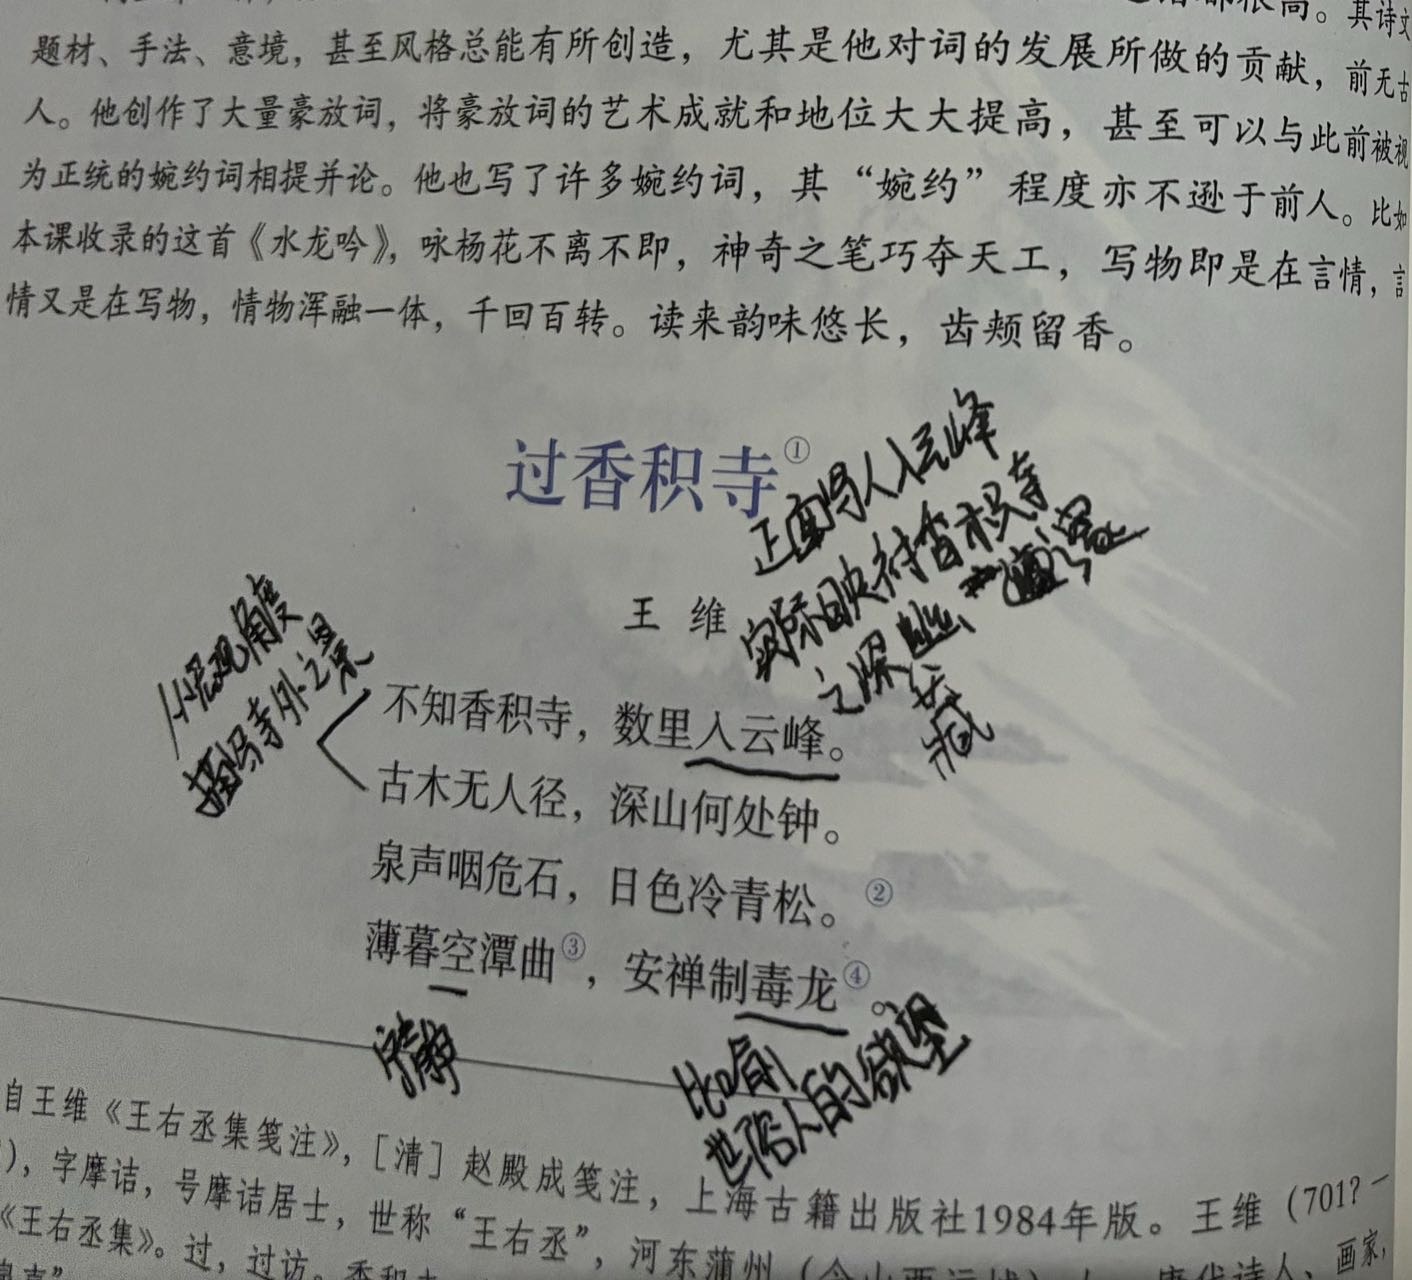 都很高。其诗文
题材、手法、意境，甚至风格总能有所创造，尤其是他对词的发展所做的贡献，前无古
人。他创作了大量豪放词，将豪放词的艺术成就和地位大大提高，甚至可以与此前被视
为正统的婉约词相提并论。他也写了许多婉约词，其“婉约”程度亦不逊于前人。比如
本课收录的这首《水龙吟》，咏杨花不离不即，神奇之笔巧夺天工，写物即是在言情，言
情又是在写物，情物浑融一体，千回百转。读来韵味悠长，齿颊留香。
过香积寺①
正面写人入云峰
实际映衬香积寺
之深幽
藏
王维
观角度
描写寺外之景
不知香积寺，数里入云峰。
古木无人径，深山何处钟。
泉声咽危石，日色冷青松。②
薄暮空潭曲③，安禅制毒龙④。
清静
比喻
世俗人的欲望
自王维《王右丞集笺注》，［清］赵殿成笺注，上海古籍出版社1984年版。王维（701？—
），字摩诘，号摩诘居士，世称“王右丞”，河东蒲州（今山西运城）人，唐代诗人、画家，
《王右丞集》。过，过访。香积寺